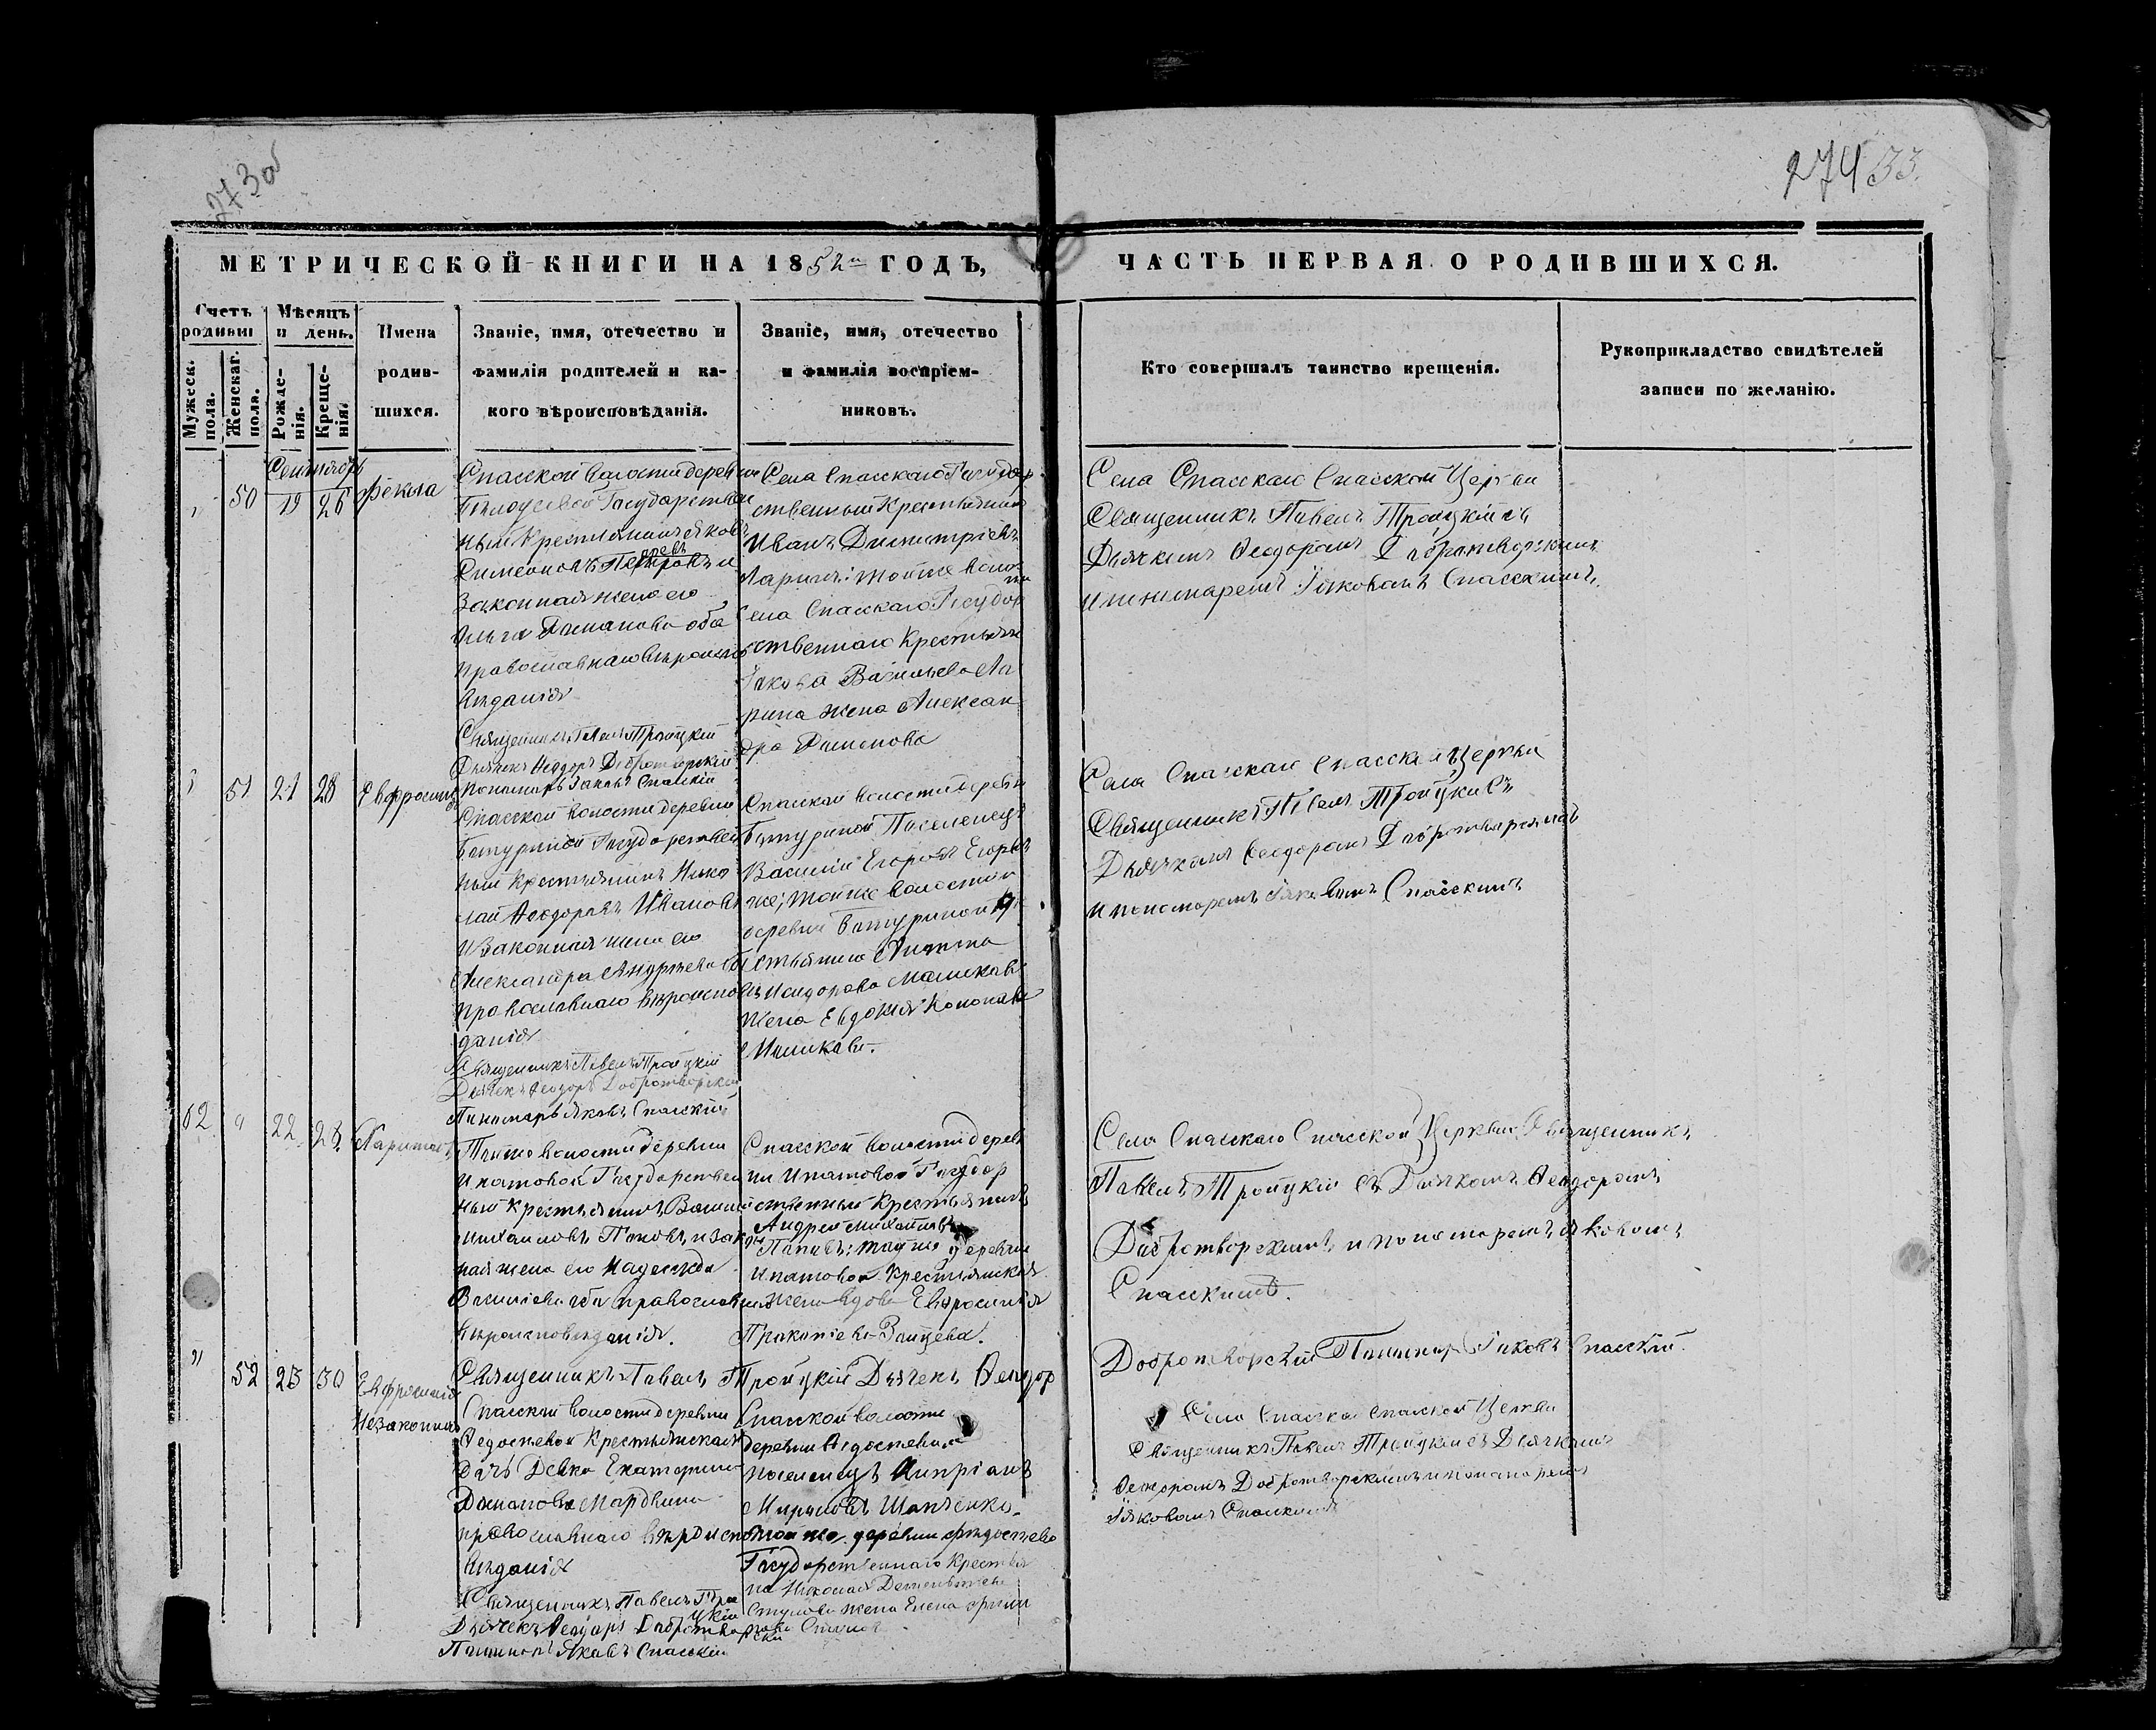 273 об
274 33.
МЕТРИЧЕСКОЙ КНИГИ НА 1852й ГОДЪ,
ЧАСТЬ ПЕРВАЯ О РОДИВШИХСЯ.
Счетъ родивш
Мужеск. пола.
Женскаг. пола.
Мѣсяцъ и день.
Рожде-нія.
Креще-нія.
Имена
родив-
шихся.
Званіе, имя, отечество и
фамилія родителей и ка-
кого вѣроисповѣданія.
Званіе, имя, отечество
и фамилія воспріем-
никовъ.
Кто совершалъ таинство крещенія.
Рукоприкладство свидѣтелей
записи по желанію.
Сентябрь
" 50 19 26 Фекла
Спасской волости дерев
Государствен
ный Крестьянинъ Яковъ
Симеоновъ
Законная жена его
Ольга оба
православнаго вѣроиспо
вѣданія
Священникъ Павелъ Троицкій
Дьячекъ Ѳеодоръ Добротворскій
Пономарь Іаковъ Спаскій
Села Спасскаго Государ
ственный Крестьянинъ
Иванъ Димитріевъ
Ларинъ: тойже воло
сти
Села Спасскаго Государ
ственнаго Крестьяни
Іакова Васильева Ла
рина жена Алексан
дра
Села Спасскаго Спасской Церкви
Священникъ Павелъ Троицкій съ
Дьячкомъ Ѳеодоромъ Добротворскимъ
и пономаремъ Іаковомъ Спасскимъ.
" 51 21 28 Евфросинія
Спасской волости деревни
Батуриной Государствен
ный Крестьянинъ Нико
лай Ѳеодоровъ Ивановъ
и Законная жена его
Александра Андреева оба
православнаго вѣроисповѣ
данія
Священникъ Павелъ Троицкій
Дьячекъ Ѳеодоръ Добротворскій
Пономарь Яковъ Спаскій
Спаской волости деревни
Батуриной Поселенецъ
Василій Егоровъ Егоровъ
же; тойже волости
деревни Батуриной
Исидорова
жена Евдокія
Села Спасскаго Спасской Церкви
Священникъ Павелъ Троицкій съ
Дьячкомъ Ѳеодоромъ Добротворскимъ
и пономаремъ Іаковомъ Спасскимъ
62 " 22 28 Харитонъ
Тойже волости деревни
Ипатовой Государствен
ный Крестьянинъ Василій
Михаиловъ Поповъ и закон
ная жена его Надежда
Васильева оба православнаго
вѣроисповѣданія.
Спасской волости дерев
ни Ипатовой Государ
ственный Крестьянинъ
Андрей Михайловъ
Поповъ: тойже деревни
Ипатовой Крестьянская
жена вдова Евфросинія
Прокопіева Зайцева.
Села Спасскаго Спасской Церкви Священникъ
Павелъ Троицкій съ Дьячкомъ Ѳеодоромъ
Добротворскимъ и пономаремъ Яковомъ
Спасскимъ.
Священникъ Павелъ Троицкій Дьячекъ Ѳеодор
Добротворскій Пономарь Іаковъ Спасскій.
" 52 23 30 Евфросинія
Незаконная
Спасской волости деревни
Ѳедосѣевой Крестьянская
Дочь Девка Екатерина
Мардвина
православнаго вѣроиспо
вѣданія
Священникъ Павелъ Тро
ицкій
Дьячекъ Ѳеодоръ Добротворскій
Пономарь Яковъ Спаскій
Спасской волости
деревни Ѳедосѣевой
поселенецъ Кипріанъ
Мироновъ Шевченко.
тойже деревни Ѳедосѣево
Государственнаго Крестья
на Николая Дементьева
жена Елена
Села Спасскаго Спасской Церкви
Священникъ Павелъ Троицкій съ Дьячкомъ
Ѳеодоромъ Добротворскимъ и пономаремъ
Іяковомъ Спаскимъ